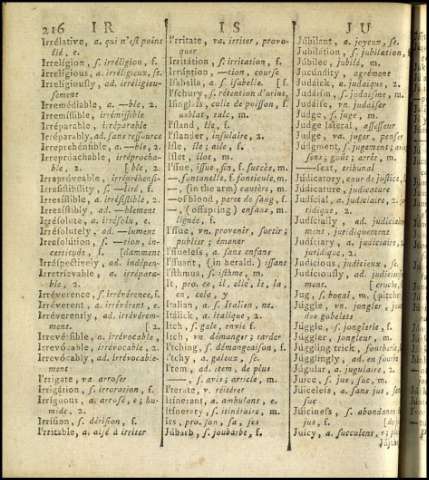 216 I R
I S
J U
Irrélative, a. qui n'est point
lié, e.
Irreligion, s. irréligion, f.
Irreligious, a. irréligieux, se.
Irreligiously, ad. irréligieu-
sement
Irremédiable, a. —ble, 2.
Irremissible, irrémissible
Irréparable, irréparable
Irréparably, ad. sans ressource
Irreprehénsible, a. —ble, 2.
Irreproachable, irréprocha-
ble, 2. [ble, 2.
Irreproveable, irrépréhensi-
Irresistibility, s. —lité, f.
Irresistible, a. irrésistible, 2.
Irresistibly, ad. —blement
Irrésolute, a. irrésolu, e.
Irrésolutely, ad. —lument
Irresolution, s. —tion, in-
certitude, f. [damment
Irrespectively, ad. indépen-
Irretrievable, a. irrépara-
ble, 2.
Irréverence, s. irrévérence, f.
Irréverent, a. irrévérent, e.
Irréverently, ad. irrévérem-
ment. [2.
Irreversible, irrévocable,
Irrévocable, irrévocable, 2.
Irrévocably, ad. irrévocable-
ment
Irrigate, va. arroser
Irrigation, s. irroration, f.
Irriguous, a. arrosé, e; hu-
mide, 2.
Irrision, s. dérision, f.
Irritable, a. aisé à irriter
Irritate, va. irriter, provo-
quer
Irritation, s. irritation, f.
Irruption, —tion, course
Isabella, a. s. isabelle. [f.
Ischury, s. rétention d'urine,
Isinglass, colle de poisson, f.
usblat, talc, m.
Island, île, f.
Islander, insulaire, 2.
Isle, île; aile, f.
Islet, îlot, m.
Issue, issue, fin, f. succès, m.
— fontanelle, f. fonticule, m.
—, (in the arm) cautère, m.
—of blood, perte de sang, f.
—, (offspring) enfans, m.
lignée, f.
Issue, vn. provenir, sortir;
publier; émaner
Issueless, a. sans enfans
Issuant, (in herald.) issant
Isthmus, s. isthme, m.
It, pro. ce, il, elle, le, la,
en, cela, y
Italian, a. s. Italien, ne.
Itálick, a. italique, 2.
Itch, s. gale, envie f.
Itch, vn. démanger; tarder
Itching, s. démangeaison, f.
Itchy, a. galeux, se.
Item, ad. item, de plus
—, s. avis; article, m.
Iterate, v. réitérer
Itinerant, a. ambulant, e.
Itinerary, s. itinéraire, m.
Its, pro. son, sa, ses
Júbarb, s. joubarbe, f.
Júbilant, a. joyeux, se.
Jubilation, s. jubilation, f.
Júbilee, jubilé, m.
Jucúndity, agrément
Judáick, a. judaïque, 2.
Júdaism, s. judaïsme, m.
Júdaise, vn. judaïser
Judge, s. juge, m.
Judge lateral, assesseur
Judge, va. juger, penser
Júdgment, s. jugement; avis,
sens, goût; arrêt, m.
—seat, tribunal
Júdicatory, cour de justice, f.
Júdicature, judicature
Judicial, a. judiciaire, 2. ju-
dique, 2.
Judicially, ad. judiciaire-
ment, juridiquement
Judiciary, a. judiciaire, 2.
juridique, 2.
Judicious, judicieux, se.
Judiciously, ad. judicieuse-
ment. [cruche,
Jug, s. bocal, m. (pitcher)
Júggle, vn. jongler, jouer
des gobelets
Júggle, s. jonglerie, f.
Júggler, jongleur, m.
Júggling trick, fourberie,
Júgglingly, ad. en fourbe
Júgular, a. jugulaire, 2.
Juice, s. jus, suc, m.
Júiceless, a. sans jus, sans
suc
Júiciness, s. abondance de
jus, f.
Juicy, a. succulent, e;